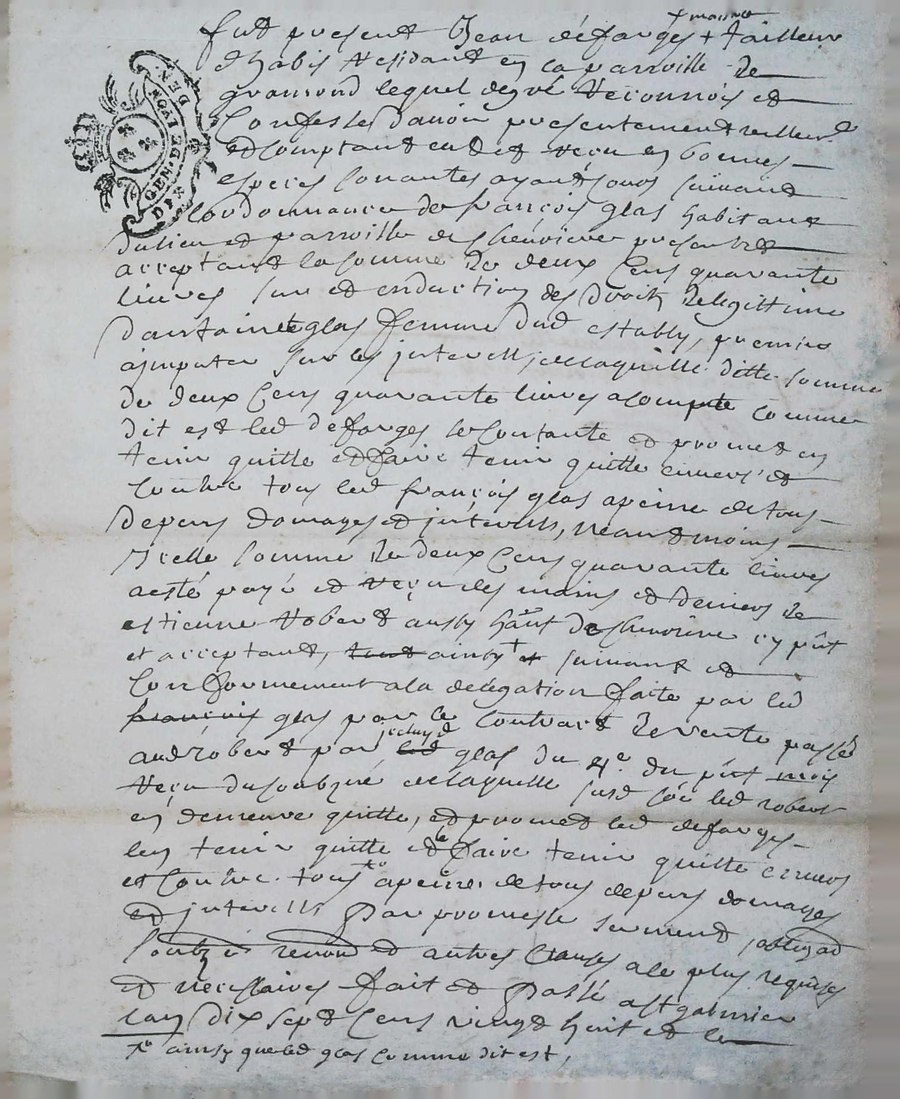 + maistre
fut present Jean défarges + tailleur
d'habis residant en la parroisse de
gramond lequel de gré reconnois et
Confesse d'avoir presentement reellemt
et comptant eu et reçu en bonnes
especes sonantes ayant cours suivant
l'ordonnance de françois glas habitant
du lieu et parroisse de chevrieres present et
acceptant la somme de deux Cens quarante
livres sur et en duction des droits de legittime
d'antoinette glas femme dud estably, premier
a jmputer sur les jnterests, de laquelle ditte somme
de deux Cens quarante livres a compte comme
dit est led defarges se contante et promet en
tenir quitte et faire tenir quitte envers et
Contre tous led françois glas a peine de tous
depens domages et jnterests, neantmoins
Icelle somme de deux Cens quarante livres
a esté payé et reçu des mains et deniers de
estienne Robert aussy hant de chevriere cy pnt
et acceptant, ainsy + suivant et
Conformement a la delégation faite par led
françois glas par le Contract de vente passé
aud robert par jceluyd led glas du 4e du pnt mois
reçu du soubzné de laquelle susd led robert
en demeure quitte, et promet led defarges
l'en tenir quitte et le faire tenir quitte envers
et Contre tous a peine de tous depens domages
et jnterests Par promesse serment, obligaôn
soubz renonôn et autres Clauses a le plus requises
et necessaires fait et Passé a St galmier
l'an Dix sept Cens vingt huit et le
+ ainsy que led glas comme dit est,
GEN. DE LYON
DIX
DEN.